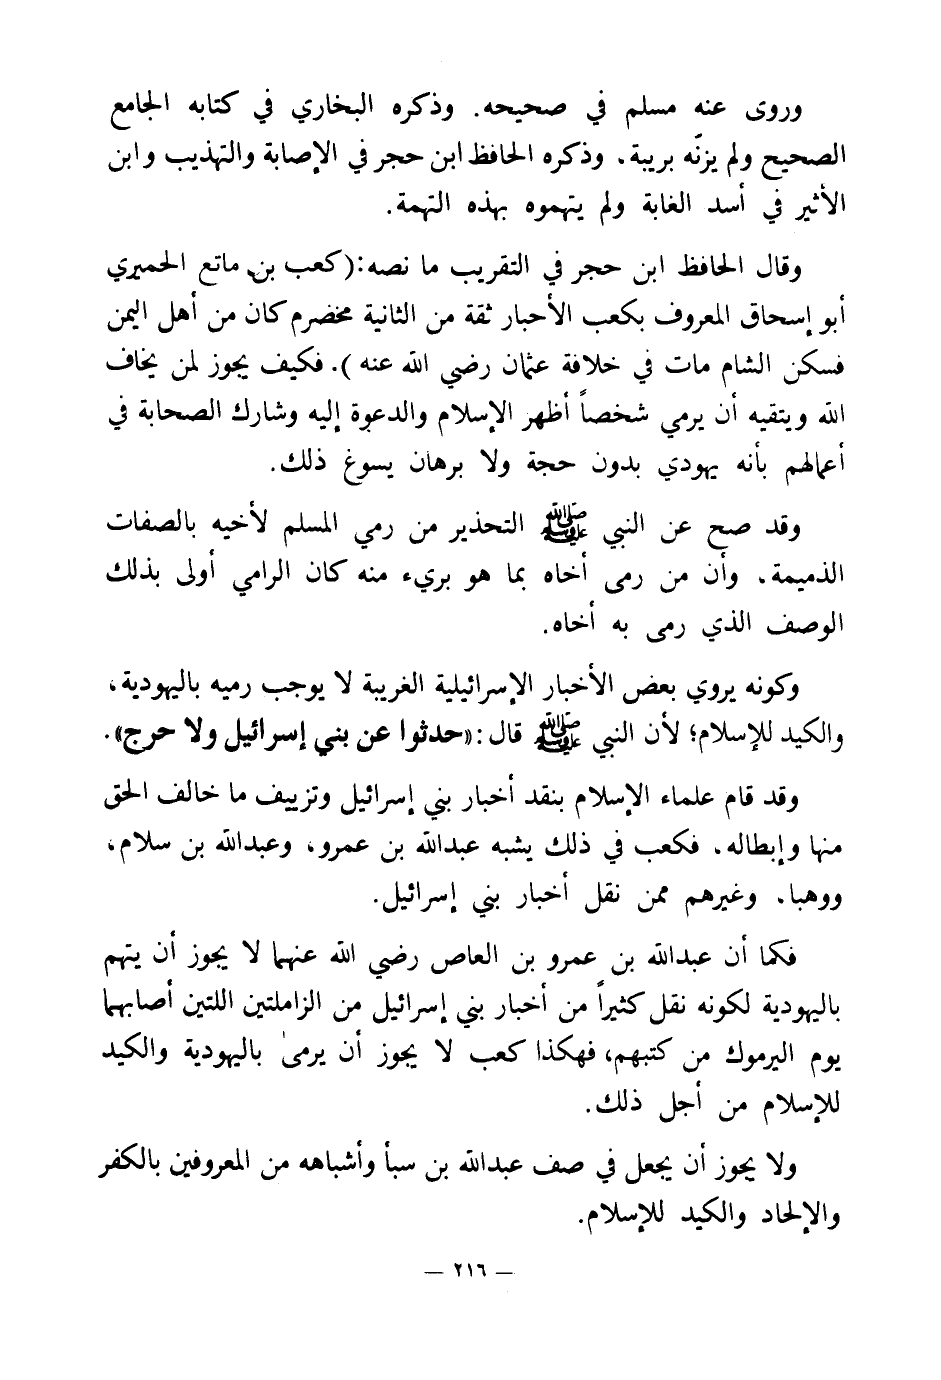 وروى عنه مسلم في صحيحه. وذكره البخاري في كتابه الجامع
الصحيح ولم يزنّه بريبة. وذكره الحافظ ابن حجر في الإصابة والتهذيب وابن
الأثير في أسد الغابة ولم يتهموه بهذه التهمة.
وقال الحافظ ابن حجر في التقريب ما نصه: (كعب بن ماتع الحميري
أبو إسحاق المعروف بكعب الأحبار ثقة من الثانية مخضرم كان من أهل اليمن
فسكن الشام مات في خلافة عثمان رضي الله عنه). فكيف يجوز لمن يخاف
الله ويتقيه أن يرمي شخصاً أظهر الإسلام والدعوة إليه وشارك الصحابة في
أعمالهم بأنه يهودي بدون حجة ولا برهان يسوغ ذلك.
وقد صح عن النبي ﷺ التحذير من رمي المسلم لأخيه بالصفات
الذميمة. وأن من رمى أخاه بما هو بريء منه كان الرامي أولى بذلك
الوصف الذي رمى به أخاه.
وكونه يروي بعض الأخبار الإسرائيلية الغريبة لا يوجب رميه باليهودية،
والكيد للإسلام؛ لأن النبي ﷺ قال: «حدثوا عن بني إسرائيل ولا حرج».
وقد قام علماء الإسلام بنقد أخبار بني إسرائيل وتزييف ما خالف الحق
منها وإبطاله. فكعب في ذلك يشبه عبدالله بن عمرو، وعبدالله بن سلام،
ووهبا. وغيرهم ممن نقل أخبار بني إسرائيل.
فكما أن عبدالله بن عمرو بن العاص رضي الله عنهما لا يجوز أن يتهم
باليهودية لكونه نقل كثيراً من أخبار بني إسرائيل من الزاملتين اللتين أصابهما
يوم اليرموك من كتبهم، فهكذا كعب لا يجوز أن يرمىٰ باليهودية والكيد
للإسلام من أجل ذلك.
ولا يجوز أن يجعل في صف عبدالله بن سبأ وأشباهه من المعروفين بالكفر
والإلحاد والكيد للإسلام.
— ٢١٦ —